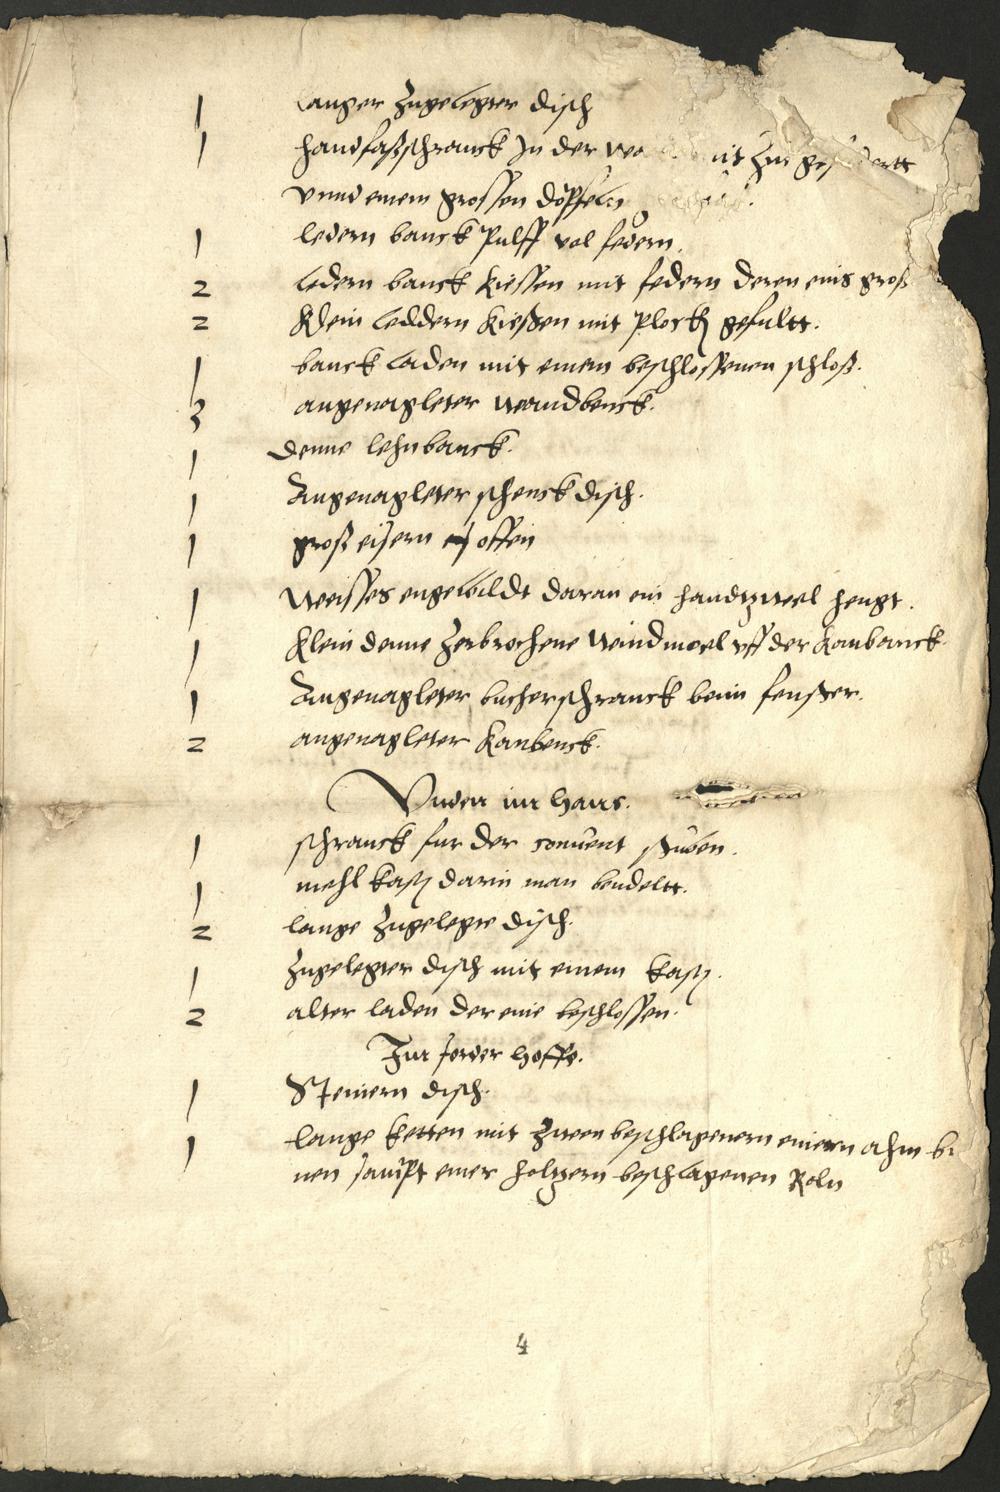 1 langer zugelegter disch
1 handfaßschranck In der mit zin
vnnd einem grossen
1 ledern banck Pulff vol federn.
2 Ledern banck kiessen mit federn deren eins groß
2 Klein Leddern kießen mit Plock gefultt.
1 banck Laden mit einem beschlossenen schloß.
3 angenagleter wandbenck.
1 denne lehnbanck.
1 Angenagleter schenck disch.
1 groß eisern offen
1 Weisses daran ein handtzweel hengt.
1 Klein denne zerbrochene vff der Kanbanck
1 Angenagleter bucherschranck beim fenster.
2 angenagleter Kanbenck.
Vnden im Haus.
1 schranck fur der conuent stuben.
1 mehl kast darin man beudeltt.
2 lange zugelegte disch.
1 zugelegter disch mit einem kast.
2 alter laden der eine beschlossen.
Im hoffe.
1 Steinern disch.
1 lange ketten mit zween beschlagenern
nen sampt einer holtzern beschlagenen Roln
4